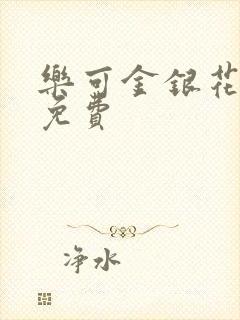 樂可金銀花
免費
净水